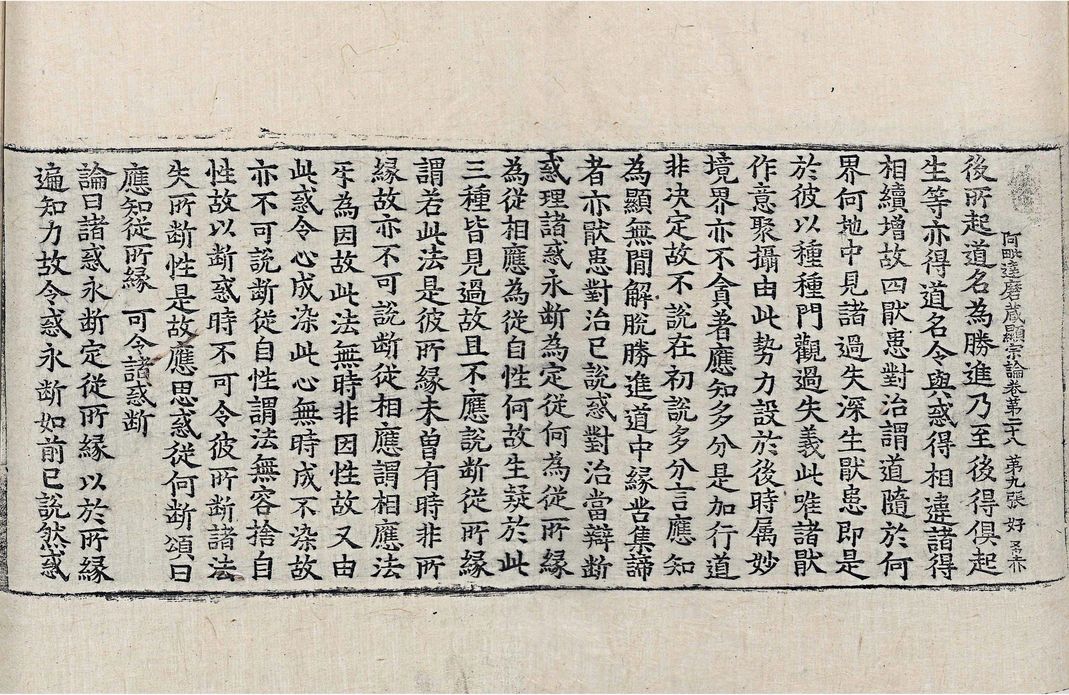 阿毗達磨蔵顯宗論卷第二十八　第九張　好
後所起道名為勝進乃至後得俱起
生等亦得道名令與惑得相違諸得
相續增故四猒患對治謂道隨於何
界何地中見諸過失深生猒患即是
於彼以種種門觀過失義此唯諸猒
作意聚攝由此勢力設於後時属妙
境界亦不貪著應知多分是加行道
非决定故不說在初說多分言應知
為顯無閒解脫勝進道中緣苦集諦
者亦猒患對治已說惑對治當辯斷
惑理諸惑永斷為定從何為從所緣
為從相應為從自性何故生疑於此
三種皆見過故且不應說斷從所緣
謂若此法是彼所緣未曾有時非所
緣故亦不可說斷從相應謂相應法
㸦為因故此法無時非因性故又由
此惑令心成染此心無時成不染故
亦不可說斷從自性謂法無容捨自
性故以斷惑時不可令彼所斷諸法
失所斷性是故應思惑從何斷頌曰
應知從所緣　可令諸惑斷
論曰諸惑永斷定從所緣以於所緣
遍知力故令惑永斷如前已說然惑